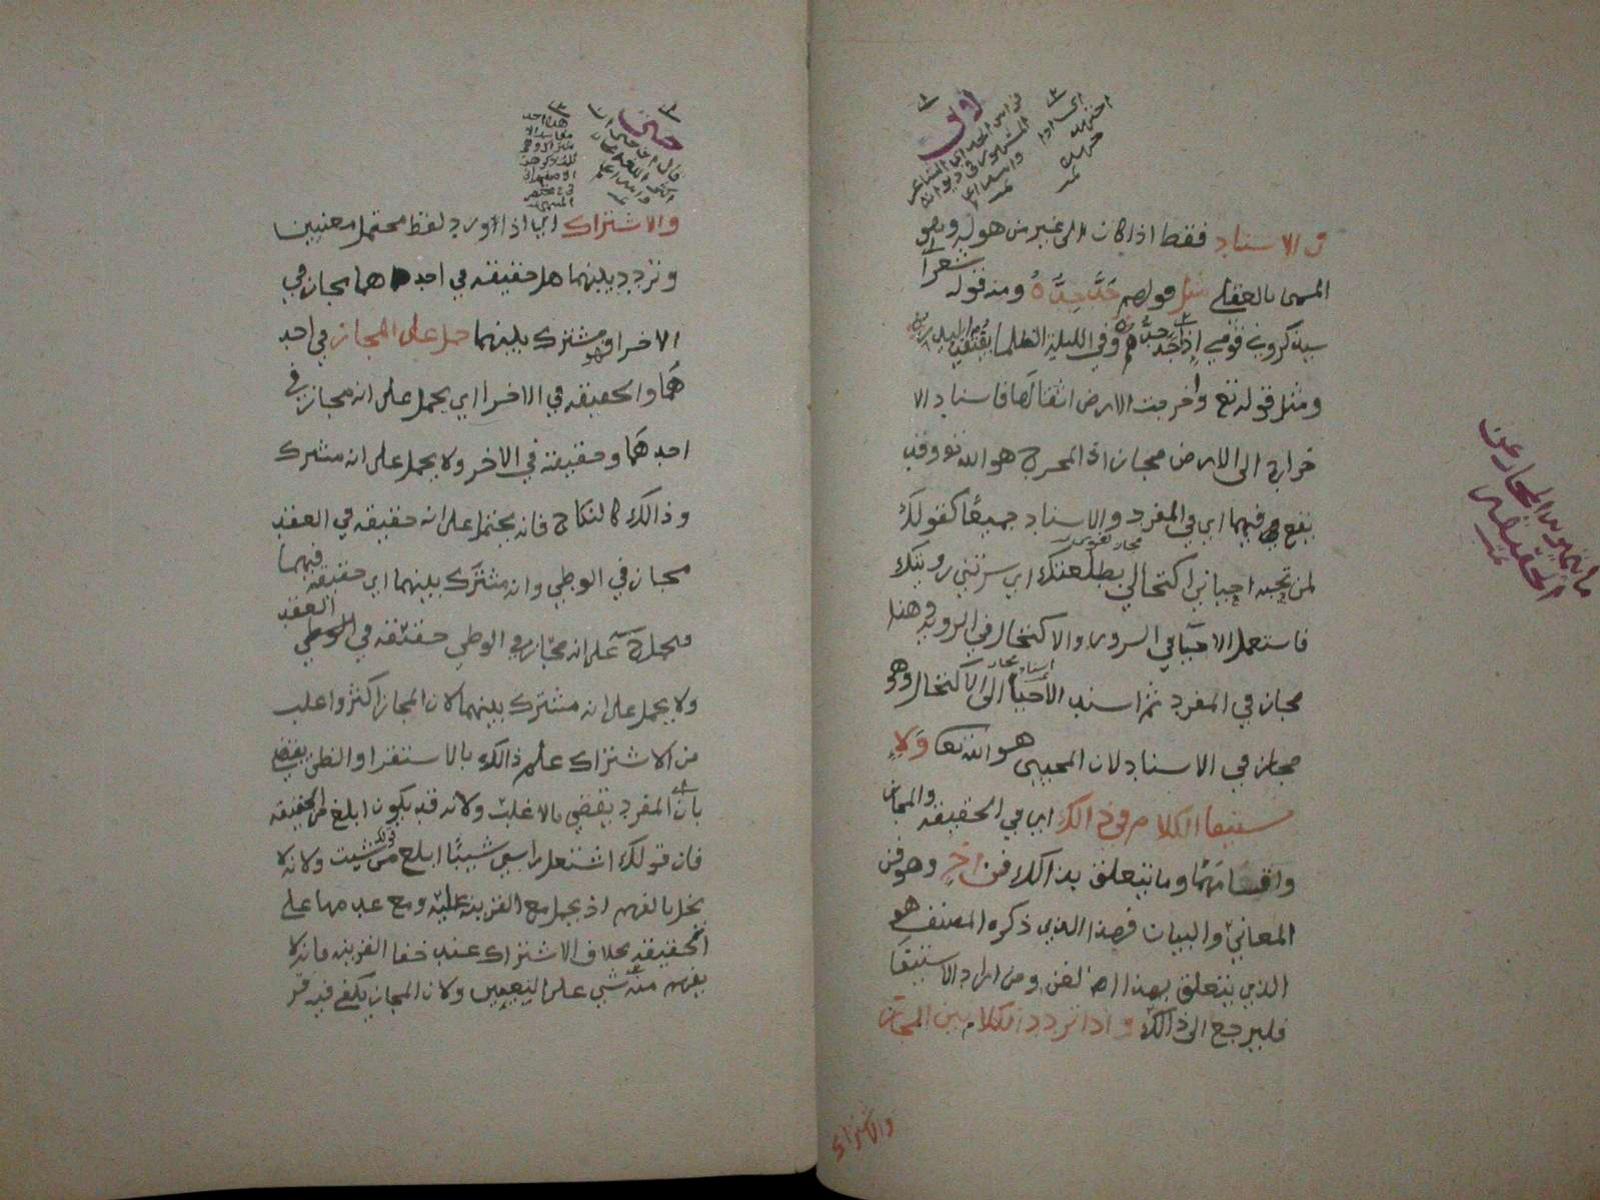 في الاسناد فقط اذا كان الى غير من هو له وهو
المسمى بالعقلي مثل قولهم جَدَّ جِدُّهُ ومنه قوله شعرا
سيذكروني قومي إذا جَدَّ جِدُّهُم وفي الليلة الظلما يُفتقد البدر
ومثل قوله تع وأخرجت الارض اثقالها فاسناد الا
خراج الى الارض مجاز اذ المخرج هو الله تع وقد
يقع فيهما اي في المفرد والاسناد جميعًا كقولك
لمن تحبه احياني اكتحالي بطلعتك اي سرتني رويتك
فاستعمل الاحيا في السرور والاكتحال في الروية وهذا
مجاز في المفرد ثم اسند الأحيا الى الاكتحال وهو
مجاز في الاسناد لان المحيي هو الله تعا وَلاِ
ستيفا الكلام في ذالك اي في الحقيقة والمجاز
واقسامهما وما يتعلق بذالك فن اخر وهو فن
المعاني والبيان فهذا الذي ذكره المصنف هو
الذي يتعلق بهذا الفن ومن اراد الاستيفا
فليرجع الى ذالك واذا تردد الكلام بين المجاز
والاشتراك
ما يميز به المجاز عن
الحقيقة
والاشتراك اي اذا اورد لفظ محتمل معنيين
وتردد بينهما هل حقيقه في احدهما مجاز في
الاخر او هو مشترك بينهما حمل على المجاز في احد
هما والحقيقه في الاخر اي يحمل على انه مجاز في
احدهما وحقيقة في الاخر ولا يحمل على انه مشترك
وذالك كالنكاح فانه يحتمل على انه حقيقه في العقد
مجاز في الوطي وانه مشترك بينهما اي حقيقه فيهما
على انه مجاز في الوطي حقيقه في العقد
ولا يحمل على انه مشترك بينهما لان المجاز اكثر واغلب
من الاشتراك علم ذالك بالاستقرا والظن يقضي
بان المفرد يقضي بالاغلب ولانه قد يكون ابلغ من الحقيقه
فان قولك اشتعل راسي شيبًا ابلغ من شبت ولانه لا
يخل بالفهم اذ يحمل مع القرينه عليه ومع عدمها على
الحقيقه بخلاف الاشتراك عند خفا القرينه فانه لا
يفهم منه شي على التعيين ولان المجاز يكفي فيه قر